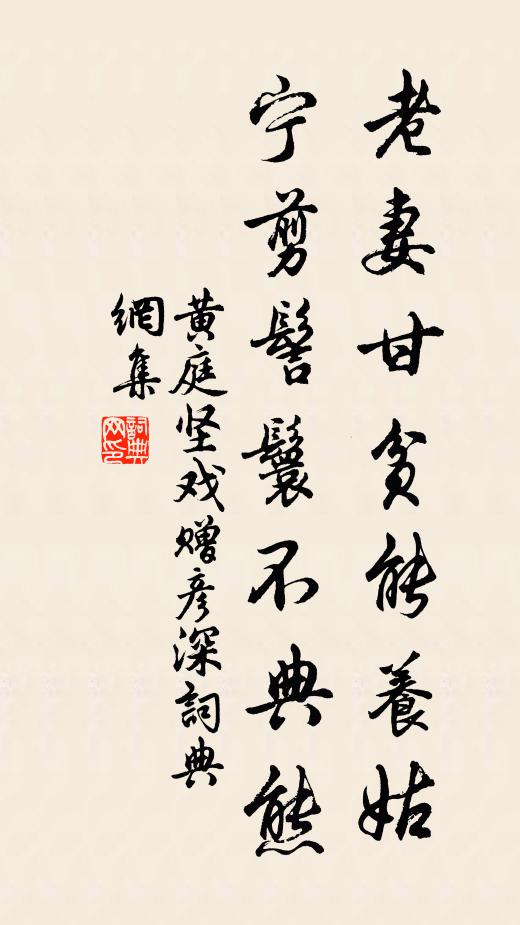 老妻甘贫能養姑
宁剪髻鬟不典熊
黄庭坚戏赠彦深詞典
網集
詞典
网印